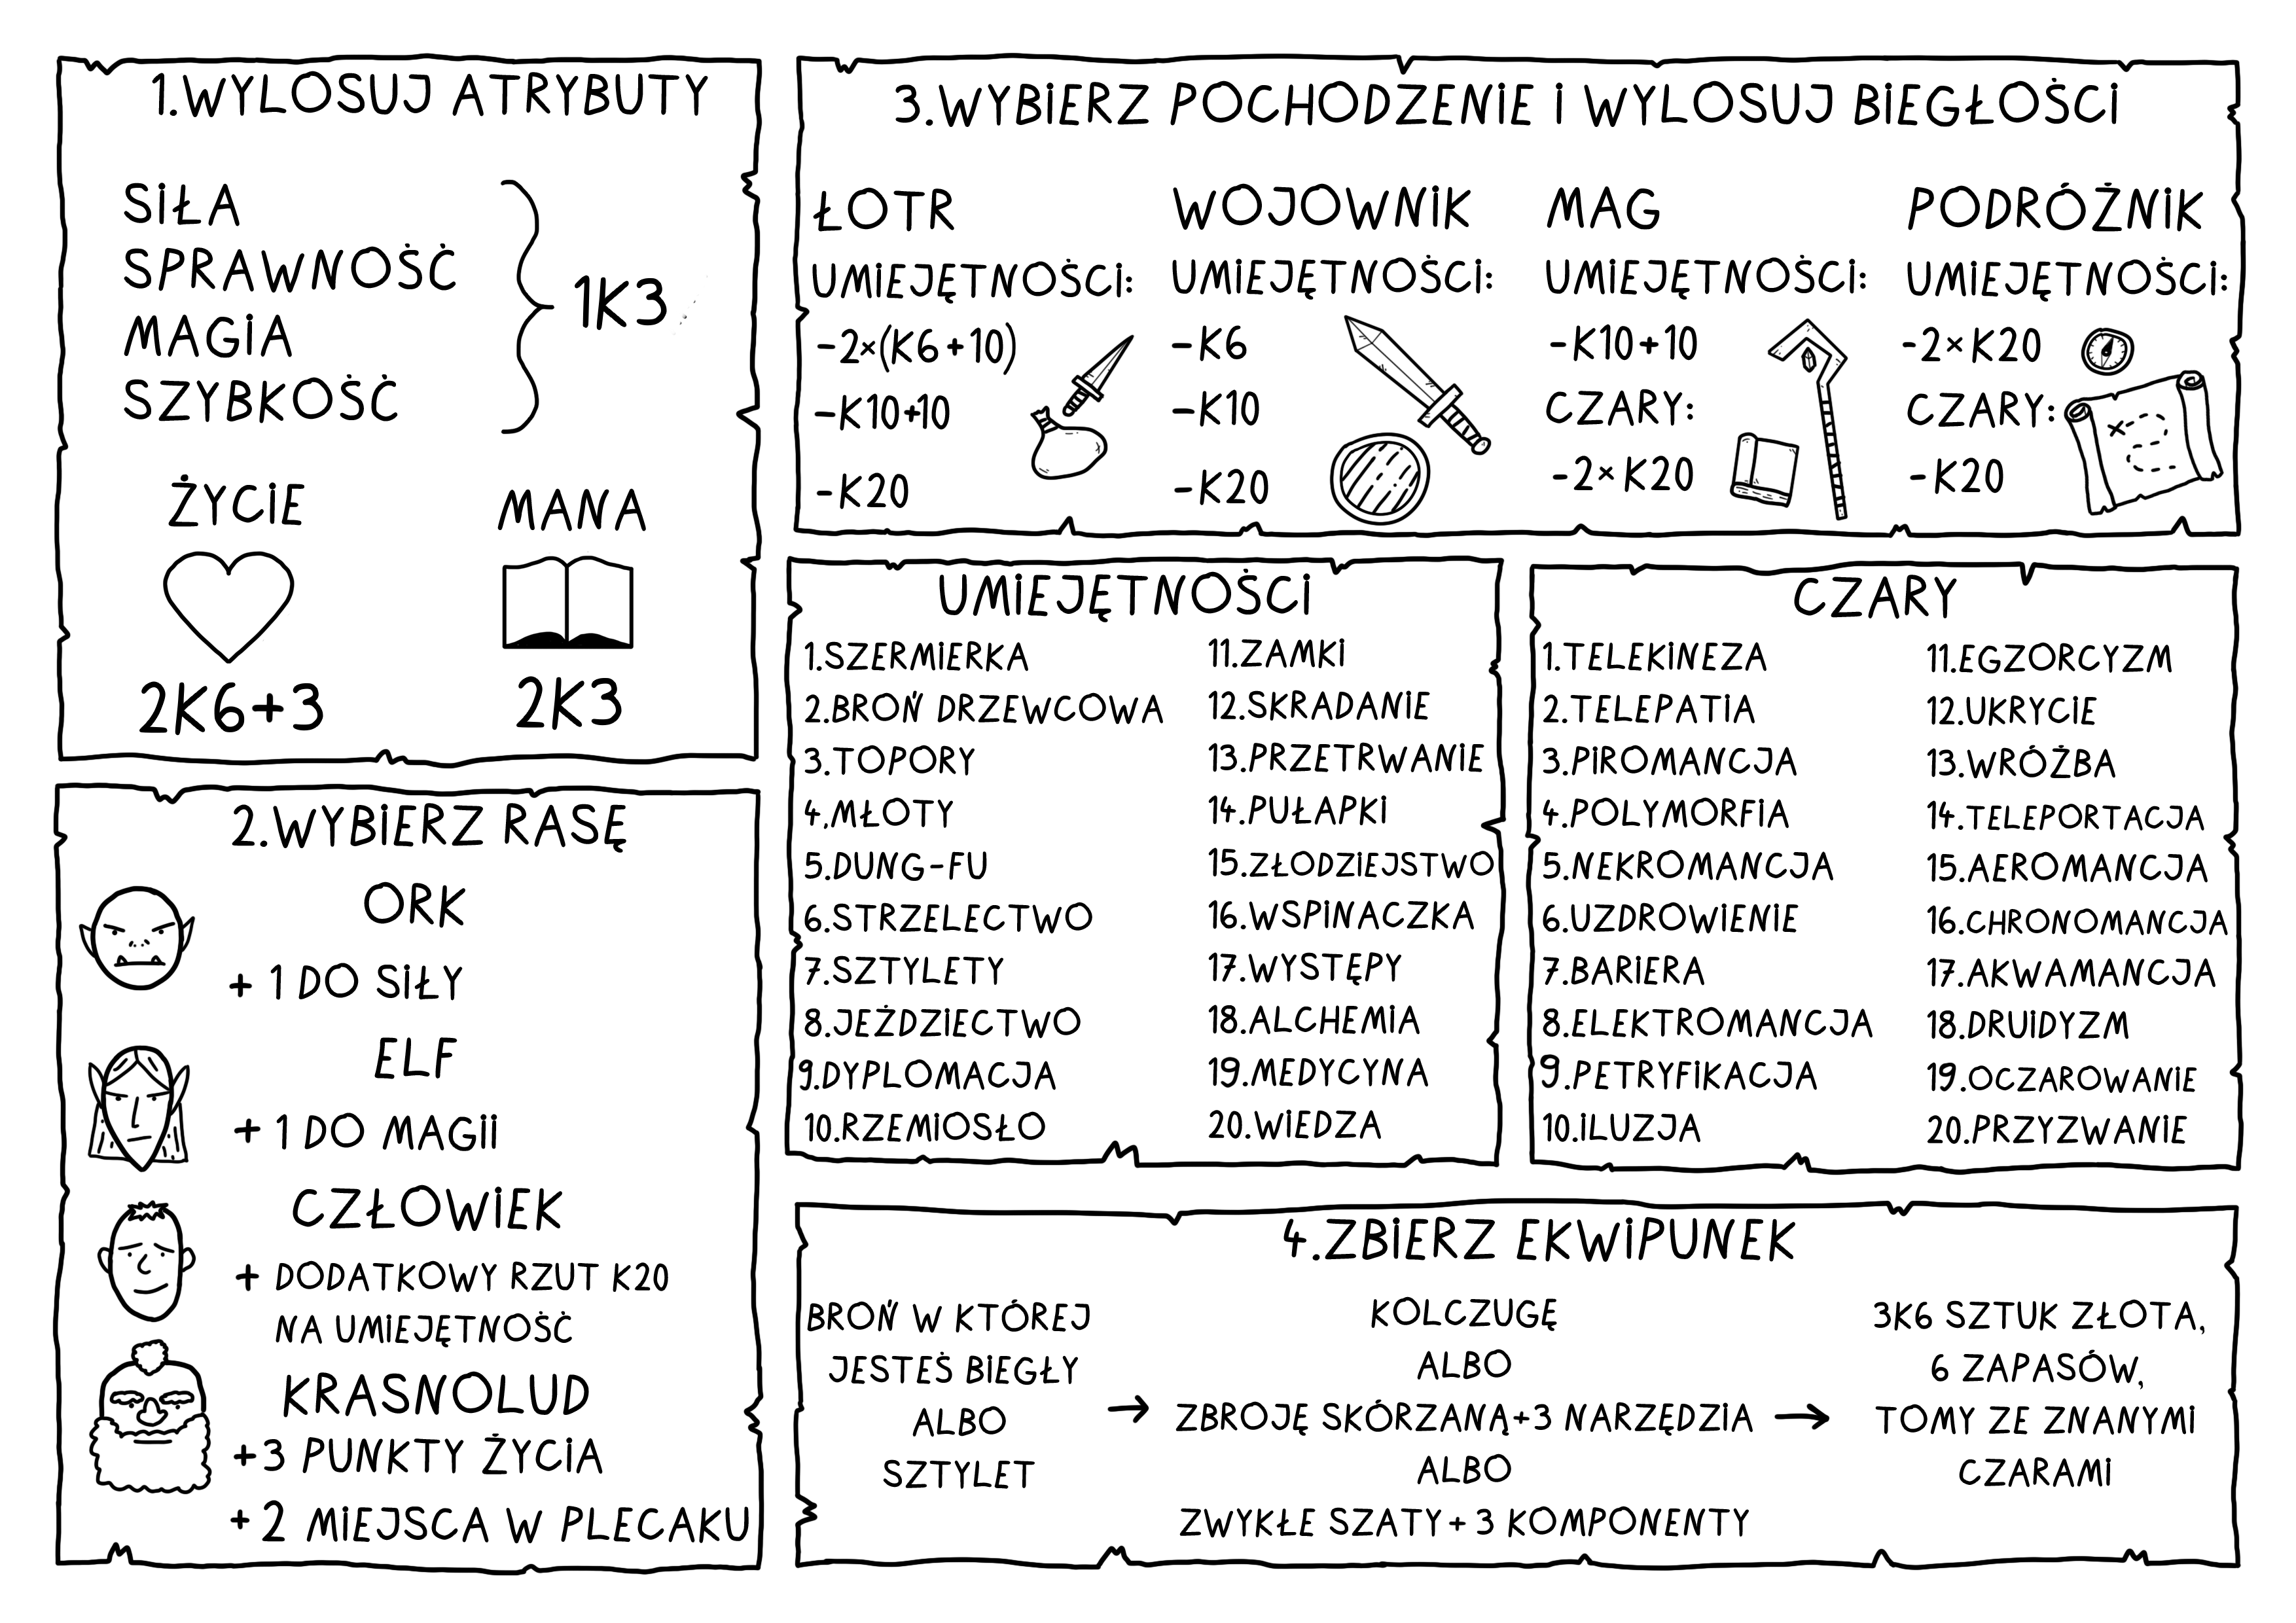 1.WYLOSUJ ATRYBUTY
SIŁA
SPRAWNOŚĆ
MAGIA
SZYBKOŚĆ
1K3
ŻYCIE
2K6+3
MANA
2K3
2.WYBIERZ RASĘ
ORK
+ 1 DO SIŁY
ELF
+ 1 DO MAGII
CZŁOWIEK
+ DODATKOWY RZUT K20
NA UMIEJĘTNOŚĆ
KRASNOLUD
+3 PUNKTY ŻYCIA
+2 MIEJSCA W PLECAKU
3.WYBIERZ POCHODZENIE I WYLOSUJ BIEGŁOŚCI
ŁOTR
UMIEJĘTNOŚCI:
-2×(K6+10)
-K10+10
-K20
WOJOWNIK
UMIEJĘTNOŚCI:
-K6
-K10
-K20
MAG
UMIEJĘTNOŚCI:
-K10+10
CZARY:
-2×K20
PODRÓŻNIK
UMIEJĘTNOŚCI:
-2×K20
CZARY:
-K20
UMIEJĘTNOŚCI
1.SZERMIERKA
2.BROŃ DRZEWCOWA
3.TOPORY
4.MŁOTY
5.DUNG-FU
6.STRZELECTWO
7.SZTYLETY
8.JEŹDZIECTWO
9.DYPLOMACJA
10.RZEMIOSŁO
11.ZAMKI
12.SKRADANIE
13.PRZETRWANIE
14.PUŁAPKI
15.ZŁODZIEJSTWO
16.WSPINACZKA
17.WYSTĘPY
18.ALCHEMIA
19.MEDYCYNA
20.WIEDZA
CZARY
1.TELEKINEZA
2.TELEPATIA
3.PIROMANCJA
4.POLYMORFIA
5.NEKROMANCJA
6.UZDROWIENIE
7.BARIERA
8.ELEKTROMANCJA
9.PETRYFIKACJA
10.ILUZJA
11.EGZORCYZM
12.UKRYCIE
13.WRÓŻBA
14.TELEPORTACJA
15.AEROMANCJA
16.CHRONOMANCJA
17.AKWAMANCJA
18.DRUIDYZM
19.OCZAROWANIE
20.PRZYZWANIE
4.ZBIERZ EKWIPUNEK
BROŃ W KTÓREJ
JESTEŚ BIEGŁY
ALBO
SZTYLET
→
KOLCZUGĘ
ALBO
ZBROJĘ SKÓRZANĄ+3 NARZĘDZIA
ALBO
ZWYKŁE SZATY+3 KOMPONENTY
→
3K6 SZTUK ZŁOTA,
6 ZAPASÓW,
TOMY ZE ZNANYMI
CZARAMI